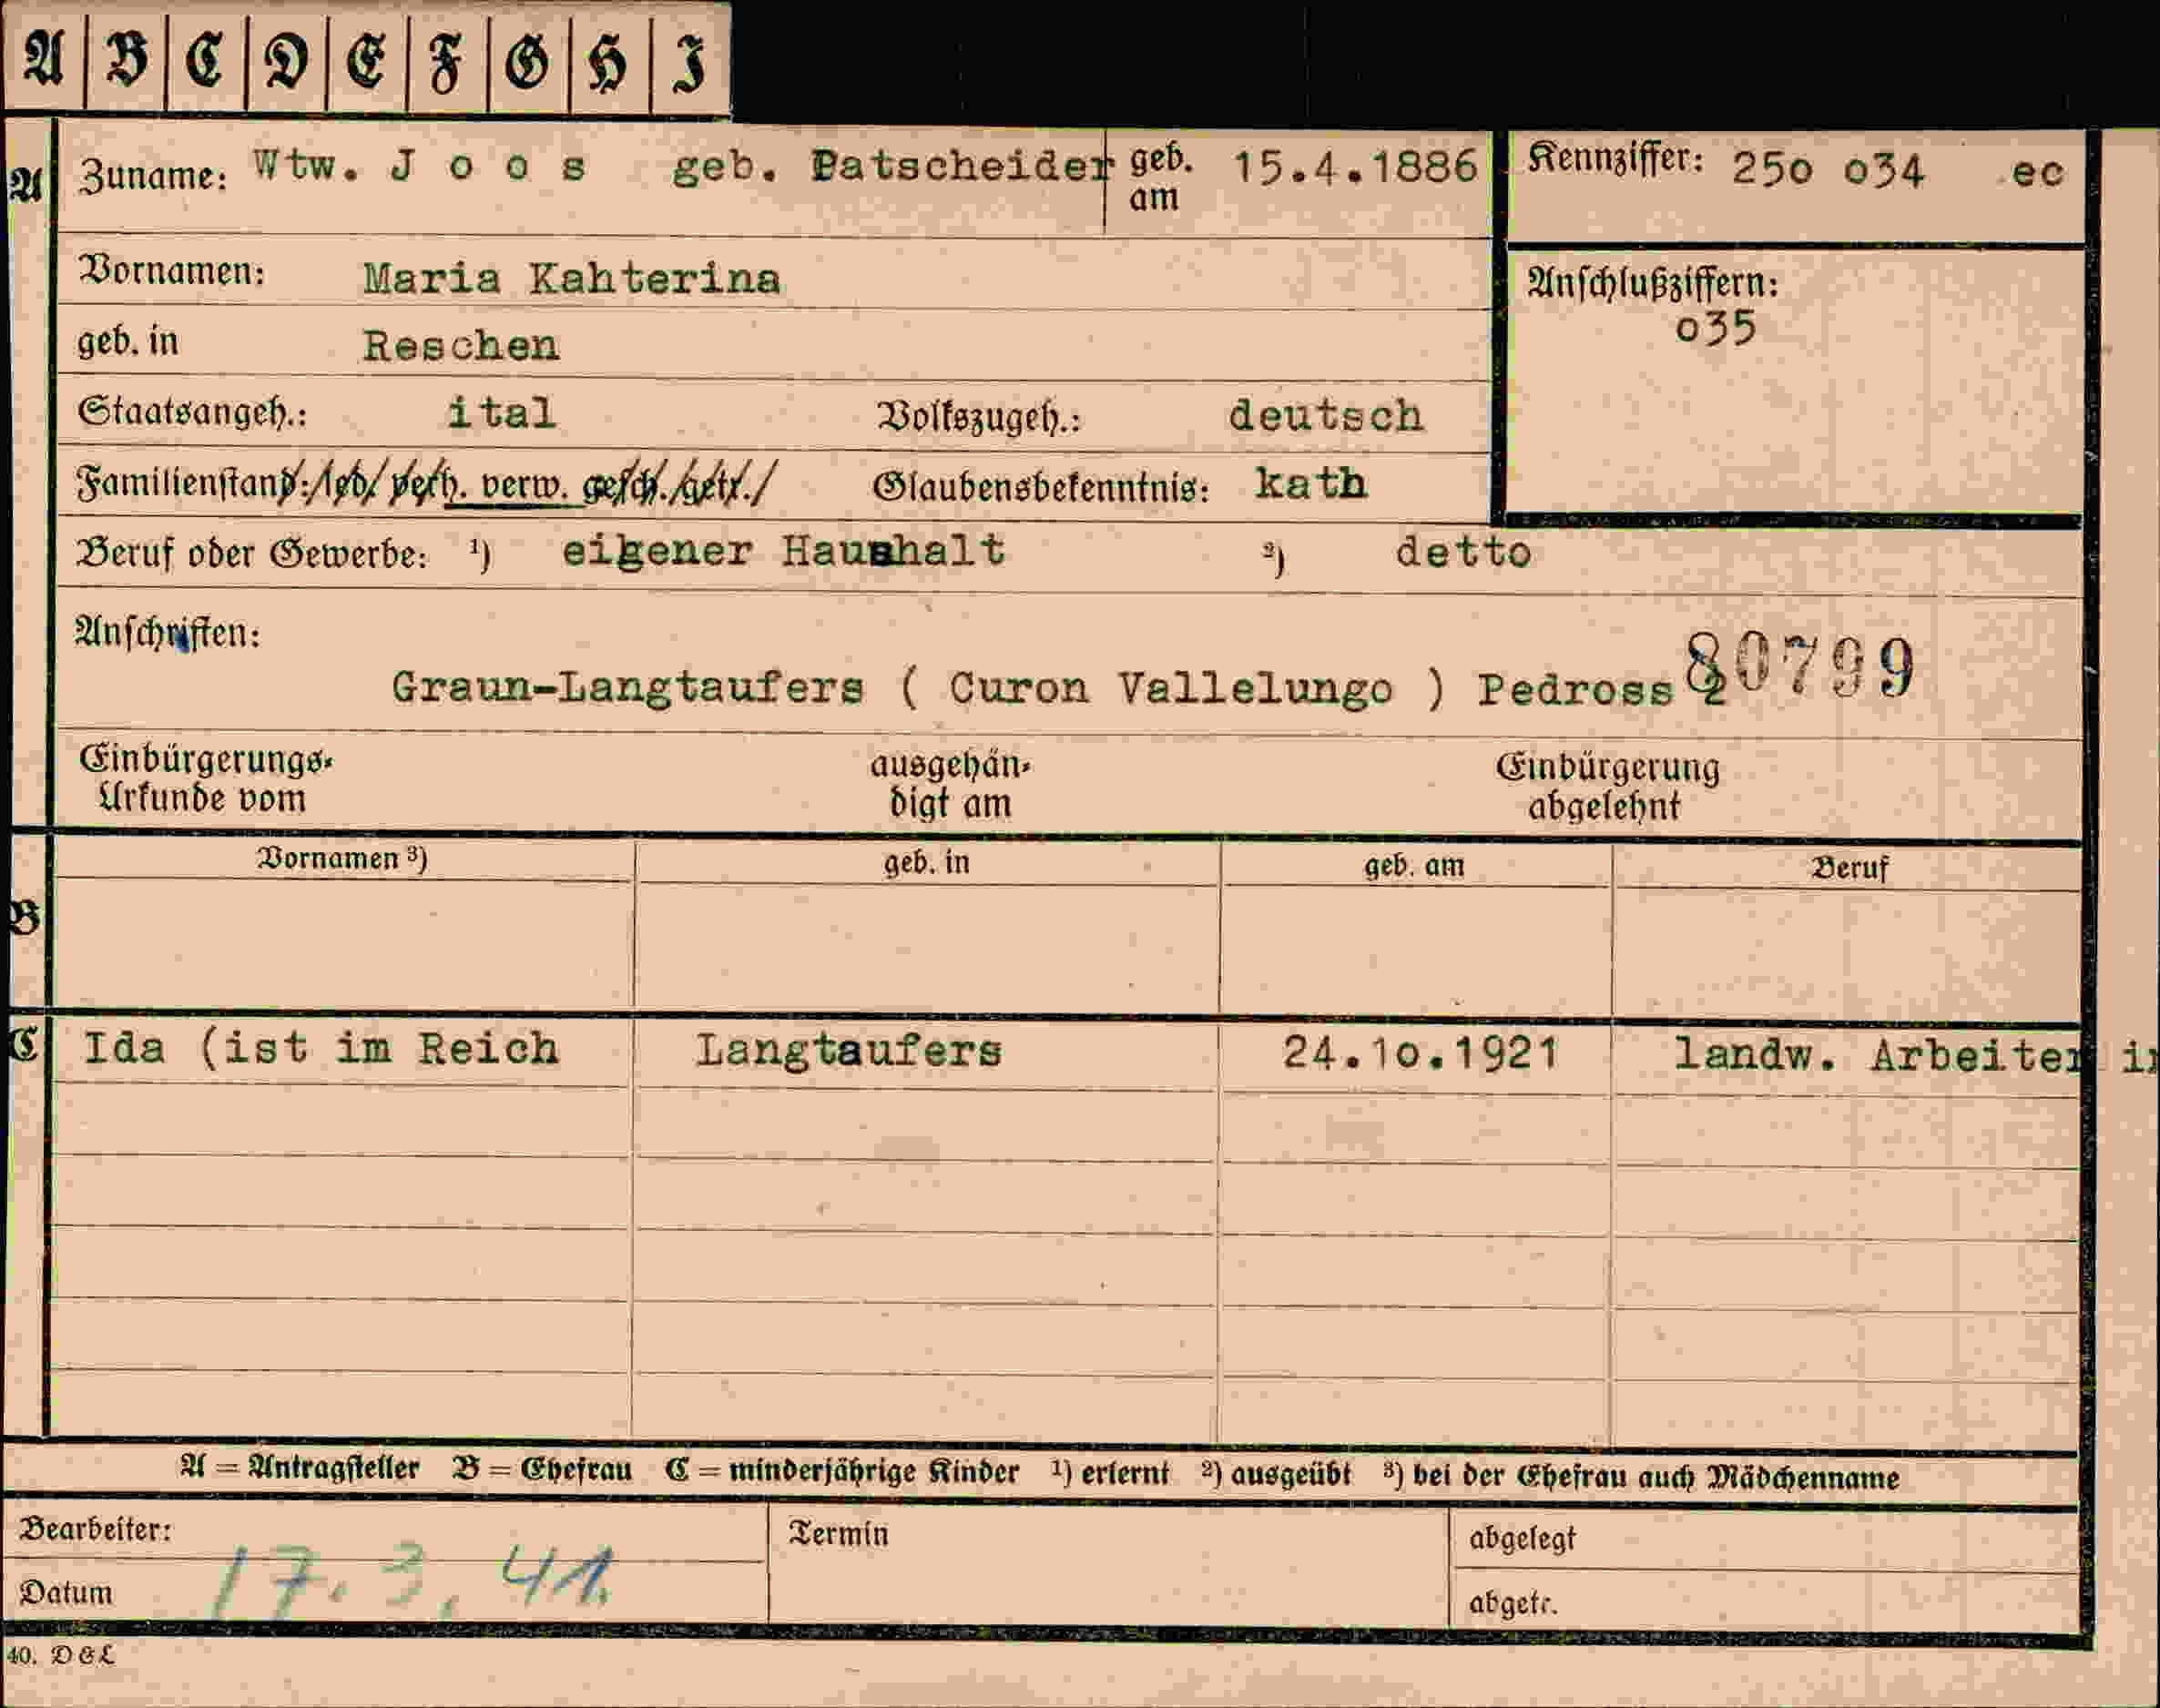 A B C D E F G H I
A Zuname: Wtw. J o o s geb. Patscheider geb. am 15.4.1886 Kennziffer: 25o o34 ec
Vornamen: Maria Kahterina
Anschlußziffern:
o35
geb. in Reschen
Staatsangeh.: ital Volkszugeh.: deutsch
Familienstand: led. verh. verw. gesch. getr. Glaubensbekenntnis: kath
Beruf oder Gewerbe: ¹) eigener Haushalt ²) detto
Anschriften:
Graun-Langtaufers ( Curon Vallelungo ) Pedross 80799
Einbürgerungs- ausgehän- Einbürgerung
Urkunde vom digt am abgelehnt
B Vornamen ³) geb. in geb. am Beruf
C Ida (ist im Reich Langtaufers 24.1o.1921 landw. Arbeiter in
A = Antragsteller B = Ehefrau C = minderjährige Kinder ¹) erlernt ²) ausgeübt ³) bei der Ehefrau auch Mädchenname
Bearbeiter: Termin abgelegt
Datum 17.3.41. abgetr.
40. D&L